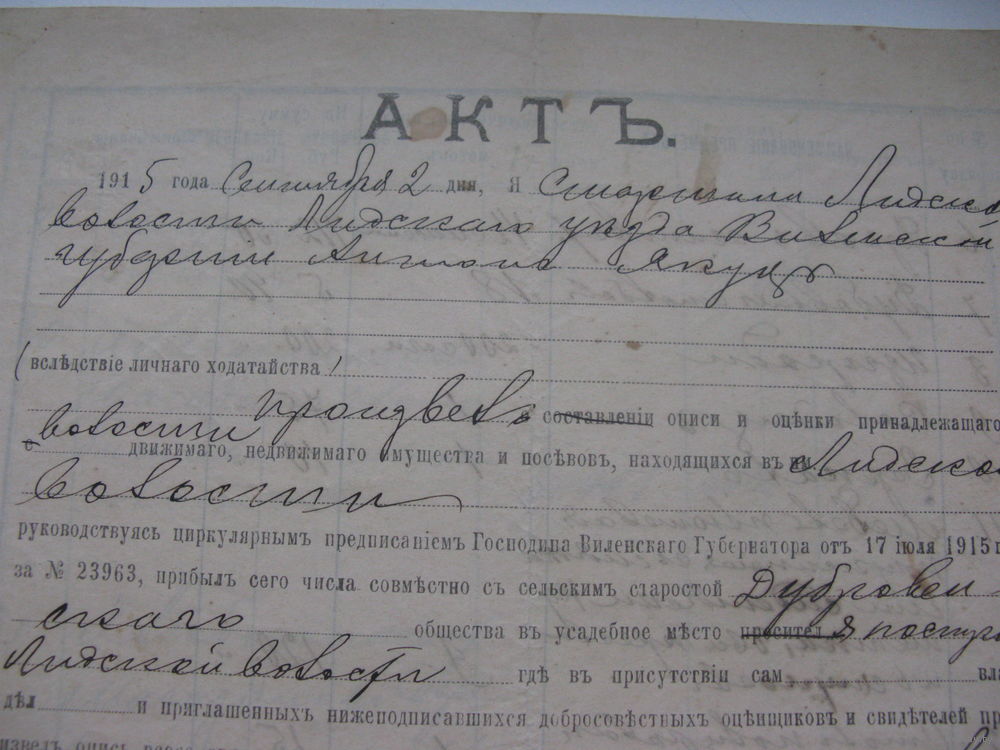 АКТЪ.
1915 года Сентября 2 дня, Я Старшина Лидской
волости Лидскаго уѣзда Виленской
губернии Антонъ Якуцъ
(вслѣдствіе личнаго ходатайства)
произвелъ составленіи описи и оцѣнки принадлежащаго
волости движимаго, недвижимаго имущества и посѣвовъ, находящихся въ Лидской
волости
руководствуясь циркулярнымъ предписаніемъ Господина Виленскаго Губернатора отъ 17 іюля 1915 г
за № 23963, прибылъ сего числа совмѣстно съ сельским старостой Дубровен-
скаго общества въ усадебное мѣсто
Лидской волости где въ присутствіи сам вла
дѣл и приглашенныхъ нижеподписавшихся добросовѣстныхъ оцѣнщиковъ и свидѣтелей пр
извелъ опись